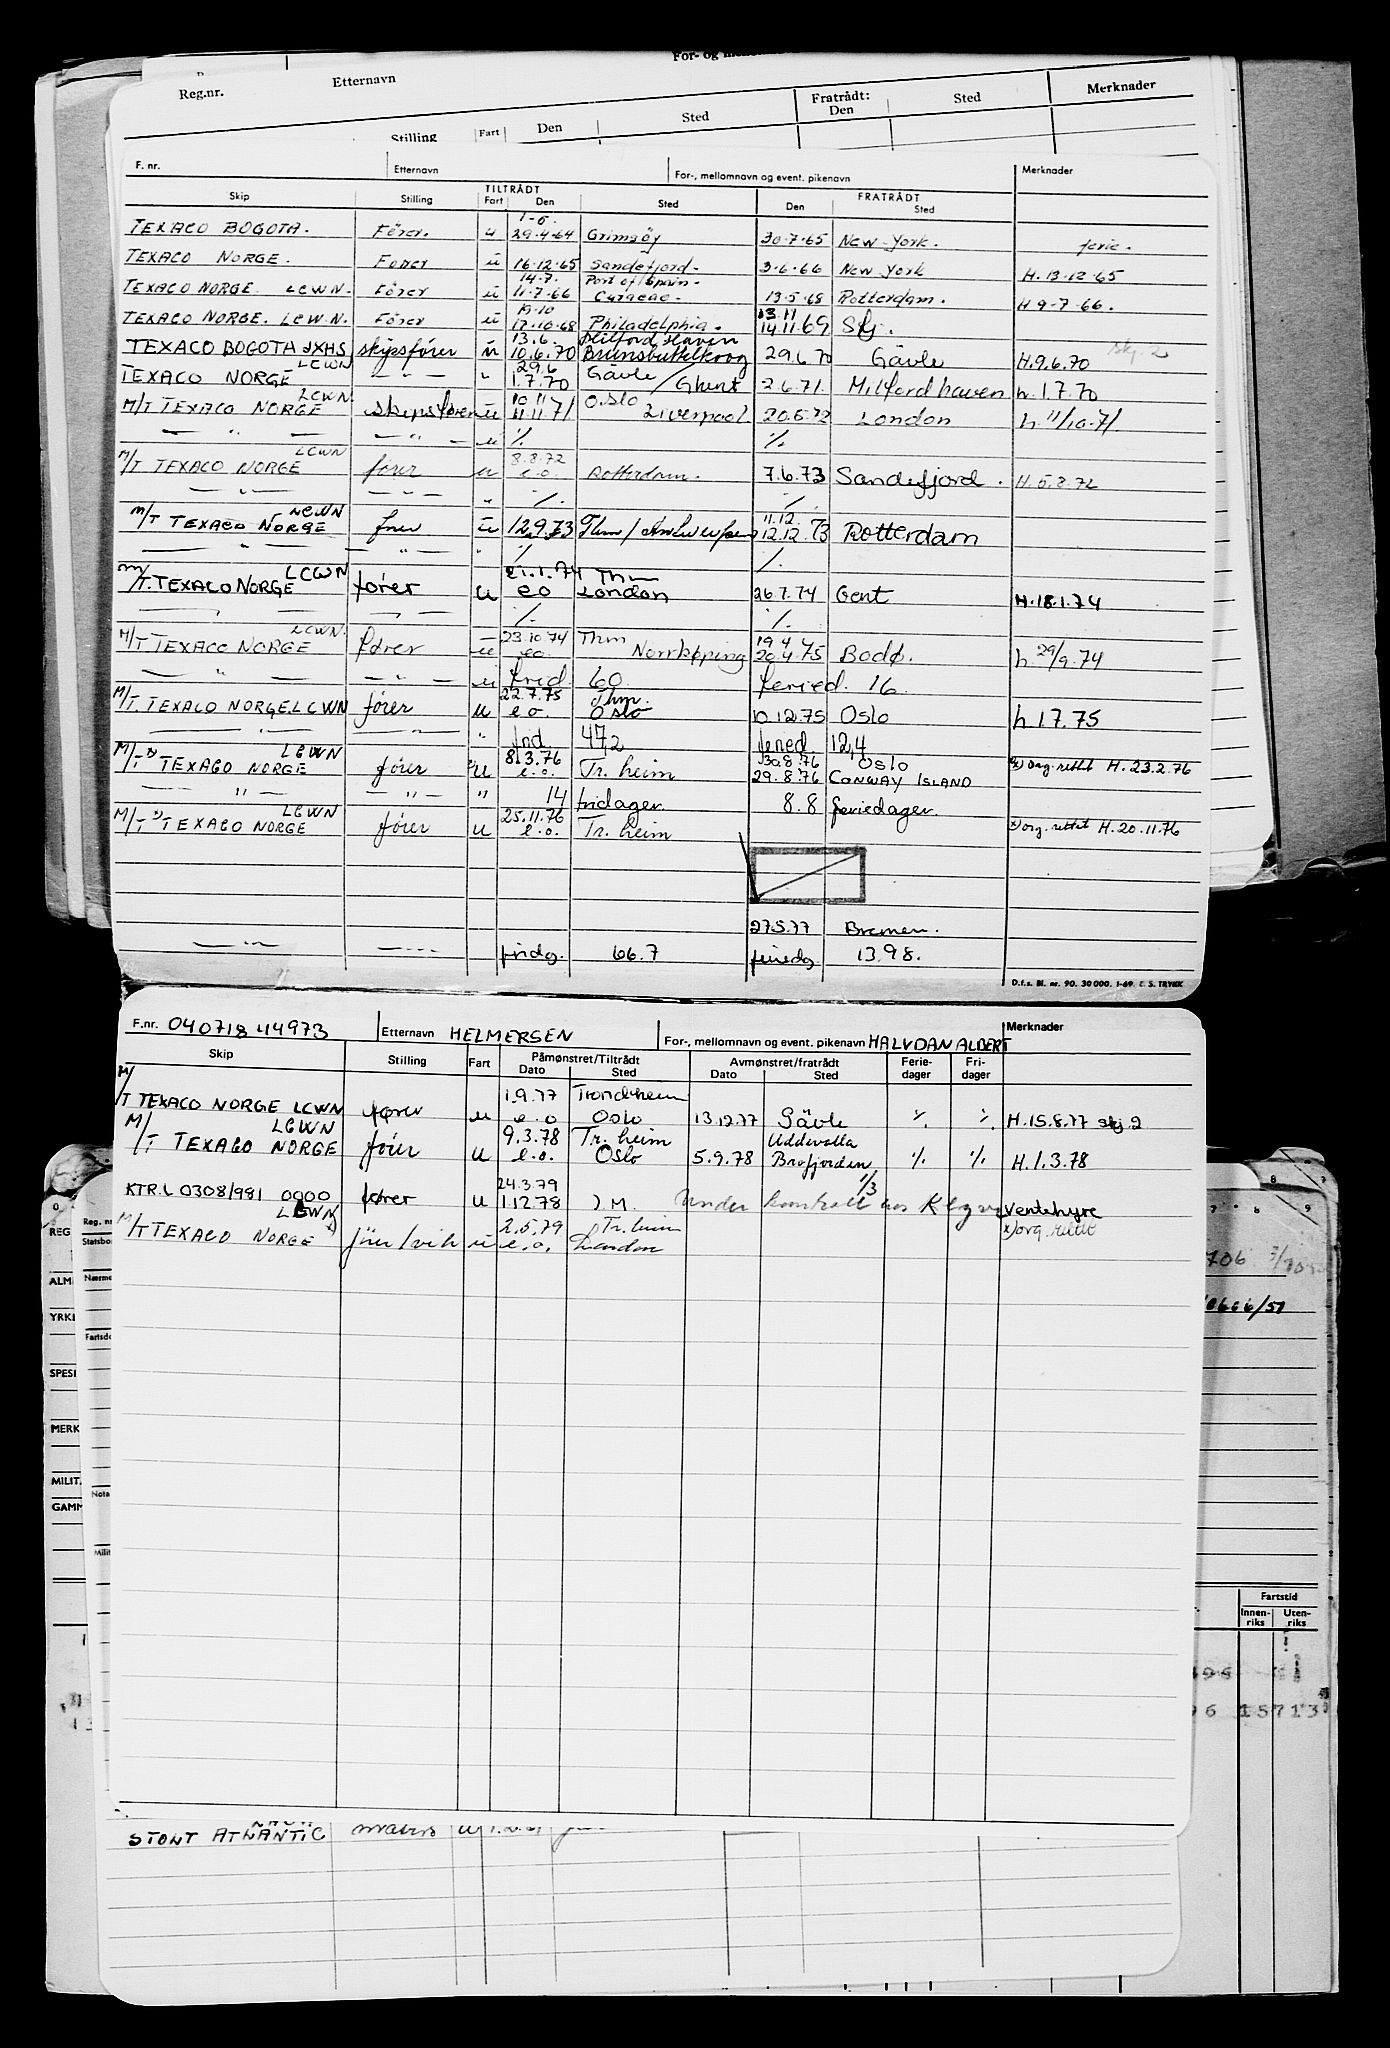 Reg.nr. Etternavn For- og
Stilling Fart Den Sted Fratrådt: Den Sted Merknader
F. nr. Etternavn For-, mellomnavn og event. pikenavn Merknader
Skip Stilling TILTRÅDT Fart Den Sted FRATRÅDT Den Sted
1-5.
TEXACO BOGOTA. Fører. u 29.4.64 Grimsøy 30.7.65 New-York. ferie.
TEXACO NORGE. Fører u 16.12.65 Sandefjord. 3.6.66 New York H.13.12.65
14.7. Port of Spain.
TEXACO NORGE LCWN. Fører u 11.7.66 Curacao. 13.5.68 Rotterdam. H 9-7-66.
19.10 13.11
TEXACO NORGE. LCWN. Fører u 17.10.68 Philadelphia. 14.11.69 Skj. skj.2
13.6. Milford Haven
TEXACO BOGOTA JXHS skipsfører u 10.6.70 Brunsbuttelkoog 29.6.70 Gävle H.9.6.70
LCWN 29.6 Gävle
TEXACO NORGE — " — " 1.7.70 /Ghent 2.6.71. Milfordhaven h.1.7.70
LCWN 10.11 Oslo
M/T TEXACO NORGE skipsfører u 11.11.71 Liverpool. 20.6.72 London h. 11/10.71
— " — — " — u ./. ./.
LCWN 8.8.72
M/T TEXACO NORGE fører u e.o. Rotterdam. 7.6.73 Sandefjord. H.5.8.72
— " — — " — " ./. ./.
LCWN 11.12.
M/T TEXACO NORGE fører u 12.9.73 Thm/ 12.12.73 Rotterdam
— " — — " — " ./. ./.
LCWN 21.1.74 Thm
M/T. TEXACO NORGE fører u eo London 26.7.74 Gent H.18.1.74
— " — — " — ./. ./.
LCWN. 23.10.74 Thm 19.4
M/T TEXACO NORGE fører u eo. Norrkøping 20.4.75 Bodø. h 29/9.74
— " — — " — u frid 60 feried. 16
22.7.75 Thm.
M/T. TEXACO NORGE. LCWN fører u e.o. Oslo 10.12.75 Oslo h 17.75
— " — — " — " frid 47,2 feried 12,4
LCWN 8.3.76 30.8.76 Oslo
M/T x) TEXACO NORGE fører u e.o. Tr. heim 29.8.76 CONWAY ISLAND x) org. rettet H.23.2.76
— " — — " — " 14 fridager 8.8 feriedager
LCWN 25.11.76
M/T x) TEXACO NORGE fører u e.o. Tr. heim x) org. rettet H.20.11.76
27.5.77 Bremen.
— " — — " — fridg. 66.7 feriedg 13.98.
D.f.s. Bl. nr. 90. 30 000. 1-69. E. S. TRYKK
F.nr. 040718 44973 Etternavn HELMERSEN For-, mellomnavn og event. pikenavn HALVDAN ALBERT Merknader
Skip Stilling Fart Påmønstret/Tiltrådt Dato Sted Avmønstret/fratrådt Dato Sted Ferie-dager Fri-dager
1.9.77 Trondheim
M/T TEXACO NORGE LCWN fører u e.o Oslo 13.12.77 Gävle ./. ./. H.15.8.77 skj.2
LCWN 9.3.78 Tr. heim Uddevalla
M/T TEXACO NORGE fører u e.o. Oslo 5.9.78 Brofjorden ./. ./. H.1.3.78
24.3.79 1/3
KTR.L 0308/981 0000 fører u 1.12.78 J.M. Under kontroll hos Ventehyre
LCWN x) 2.5.79 Tr. heim
M/T TEXACO NORGE fører/vik u e.o. London x) org. rettet
STOLT ATLANTIC
REG
ALM
YRKE
SPESI
MERK
MILIT
GAMM
Reg. nr
Statsbo
Nærme
Fartsdo
Nota
Milit
706
0666/51
Fartstid
Innen-riks Uten-riks
96 15713